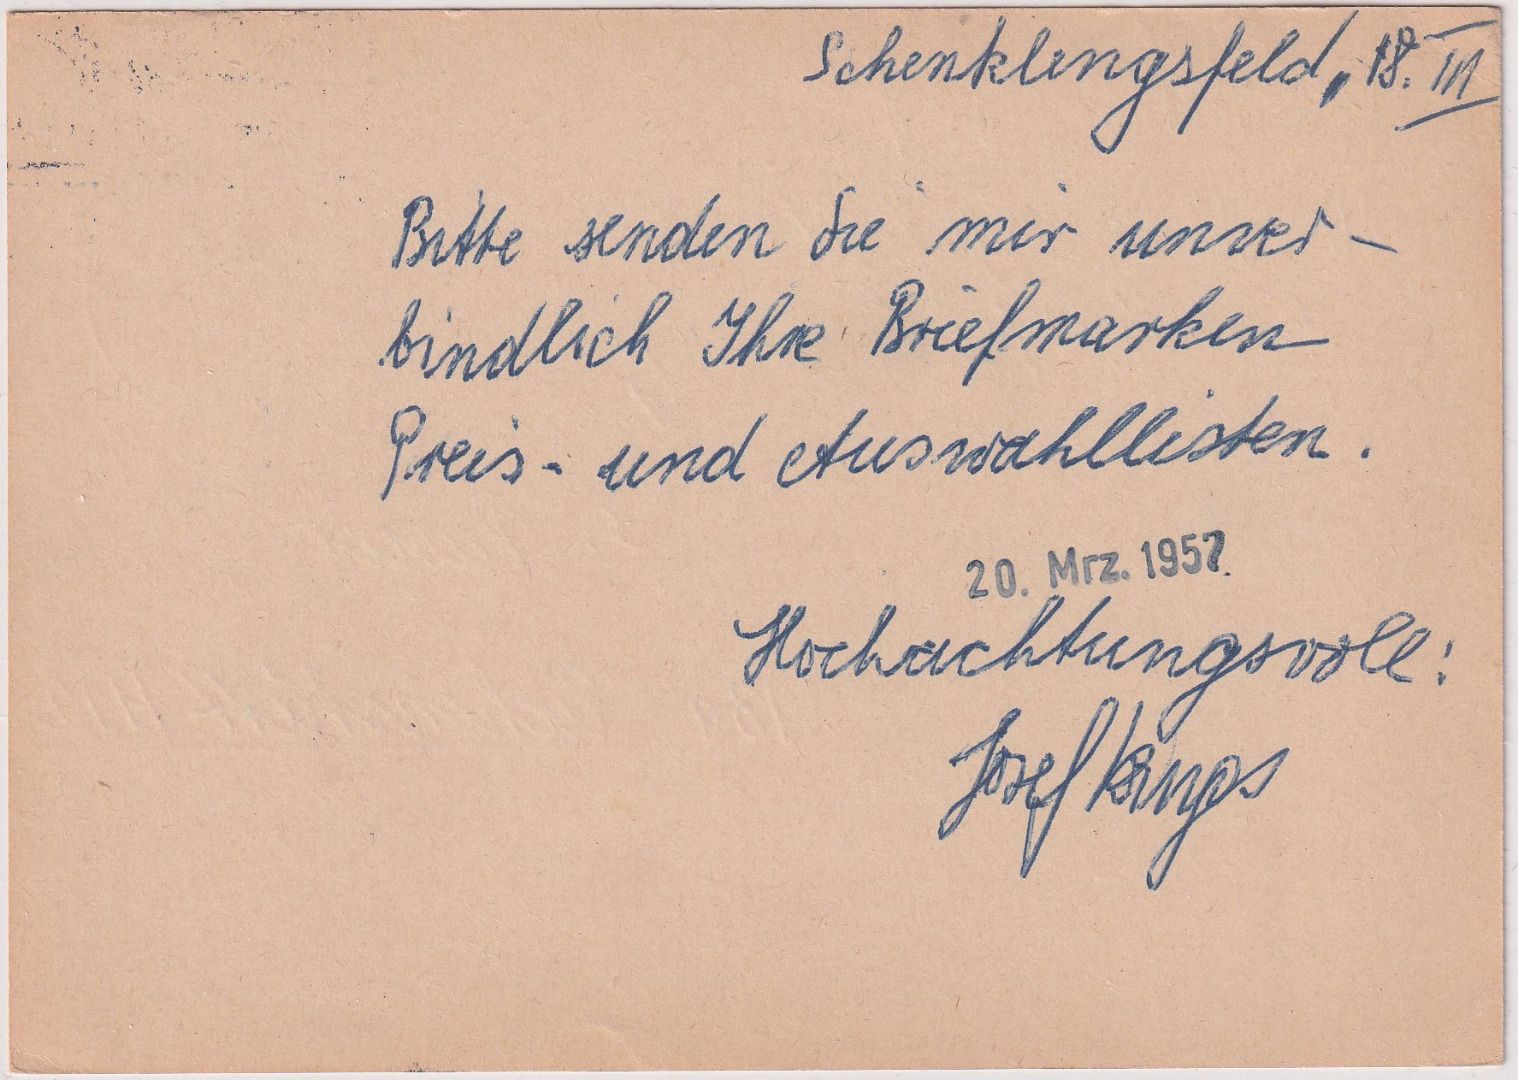 Schenklengsfeld, 18. III
Bitte senden Sie mir unver-
bindlich Ihre Briefmarken
Preis- und Auswahllisten.
20. Mrz. 1957
Hochachtungsvoll:
Josef